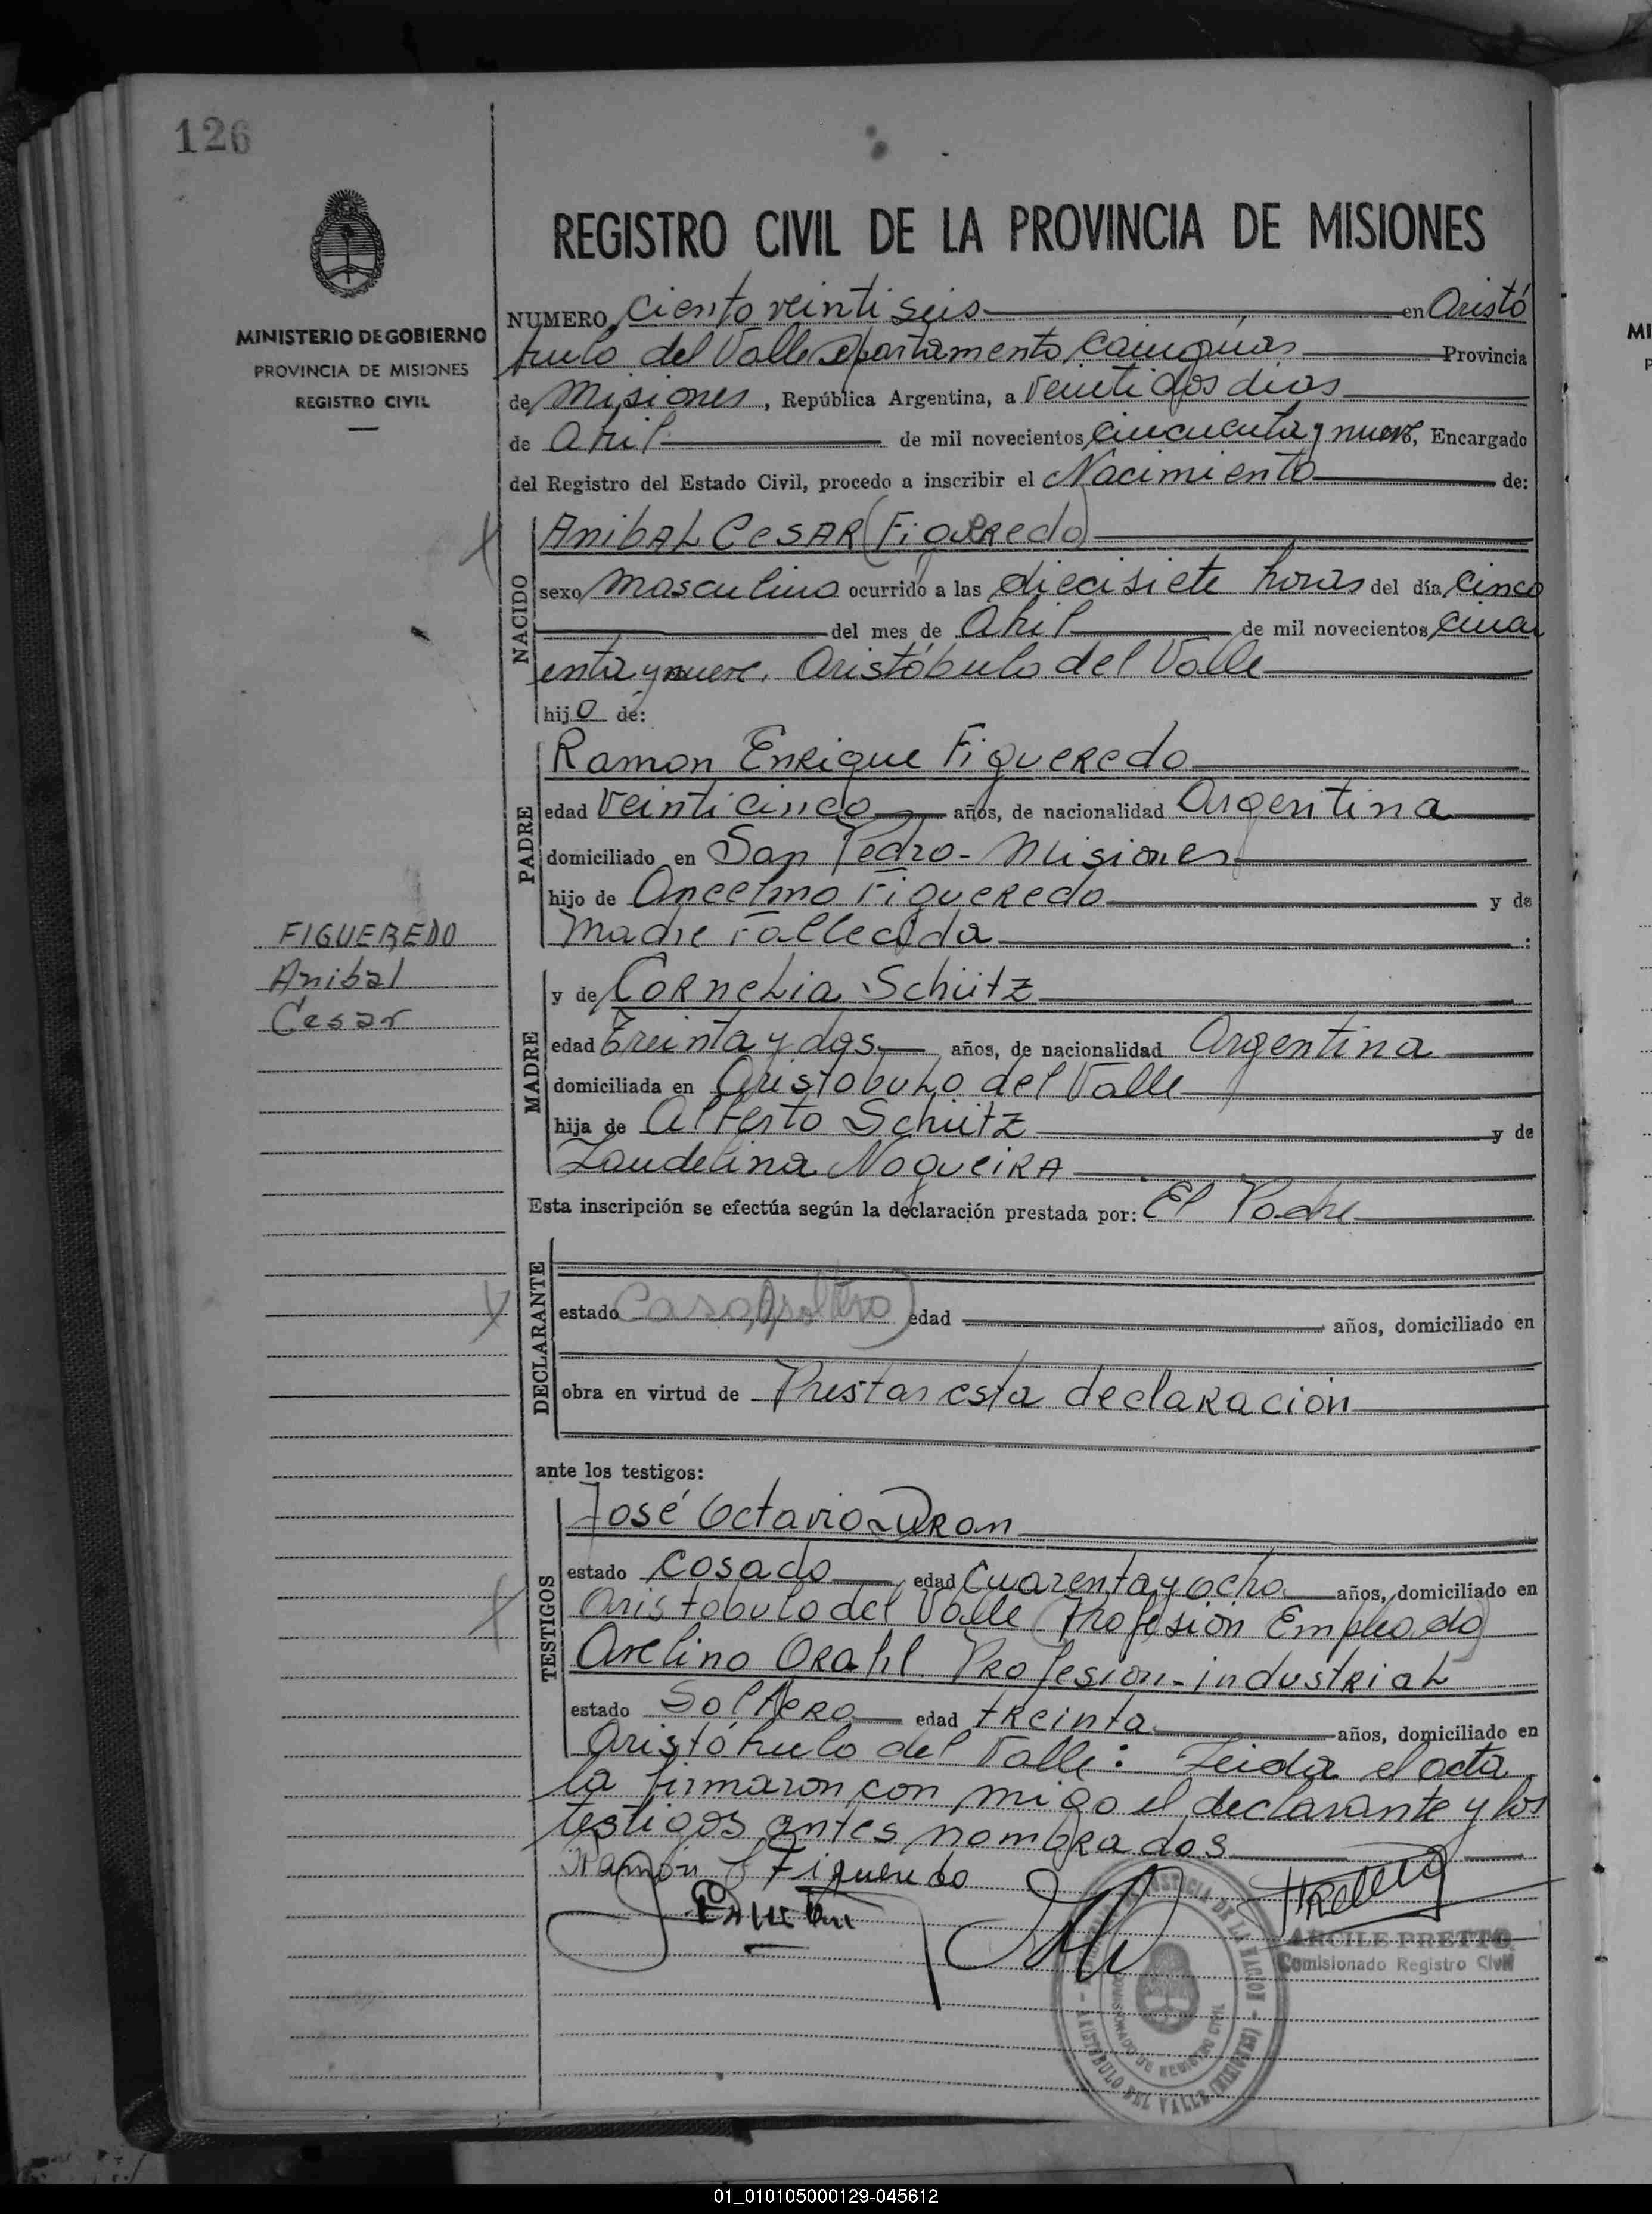 126
MINISTERIO DE GOBIERNO
PROVINCIA DE MISIONES
REGISTRO CIVIL
REGISTRO CIVIL DE LA PROVINCIA DE MISIONES
NUMERO Ciento veinti seis en Aristó
bulo del Valle Departamento Cainguás Provincia
de Misiones, República Argentina, a veinti dos dias
de Abril de mil novecientos cincuenta y nueve, Encargado
del Registro del Estado Civil, procedo a inscribir el Nacimiento de:
NACIDO
Anibal Cesar (Figueredo)
sexo masculino ocurrido a las diecisiete horas del día cinco
del mes de Abril de mil novecientos cincu
enta y nueve. Aristóbulo del Valle
hijo de:
PADRE
Ramon Enrique Figueredo
edad veinticinco años, de nacionalidad Argentina
domiciliado en San Pedro - Misiones
hijo de Ancelmo Figueredo y de
Madre Fallecida :
FIGUEREDO
Anibal
Cesar
MADRE
y de Cornelia Schütz
edad treinta y dos años, de nacionalidad Argentina
domiciliada en Aristobulo del Valle
hija de Alberto Schütz y de
Laudelina Nogueira
Esta inscripción se efectúa según la declaración prestada por: El Padre
DECLARANTE
estado edad años, domiciliado en
obra en virtud de Prestar esta declaracion
ante los testigos:
TESTIGOS
José Octavio Duran
estado Casado edad Cuarenta y ocho años, domiciliado en
Aristobulo del Valle (Profesion Empleado)
Avelino Profesion - industrial
estado Soltero edad treinta años, domiciliado en
Aristóbulo del Valle: Leida el acta
la firmaron con migo el declarante y los
testigos antes nombrados
Ramón E Figueredo
ARCILE PRETTO
Comisionado Registro Civil
JUSTICIA DE LA NACION
COMISIONADO DE REGISTRO CIVIL
ARISTOBULO DEL VALLE (MISIONES)
01_010105000129-045612